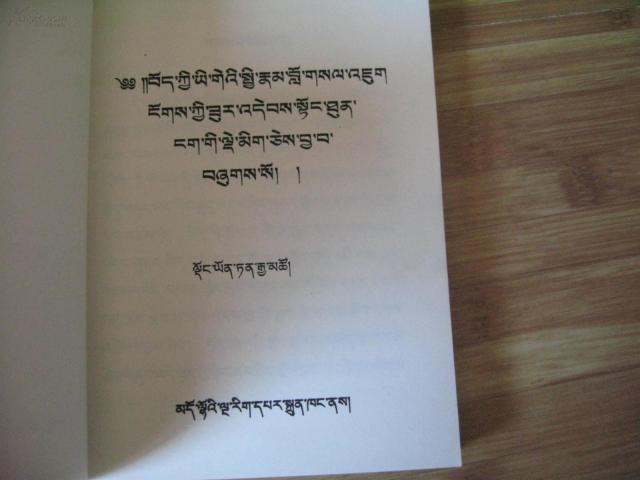 ༄༅། །བོད་ཀྱི་ཡི་གེའི་སྤྱི་རྣམ་བློ་གསལ་འཇུག
ངོགས་ཀྱི་ཟུར་འདེབས་སྟོང་ཐུན་
ངག་གི་ལྡེ་མིག་ཅེས་བྱ་བ་
བཞུགས་སོ། །
ལྡོང་ཡོན་ཏན་རྒྱ་མཚོ།
མདོ་ ལྷ་རིག་དཔར་སྐྲུན་ཁང་ནས།